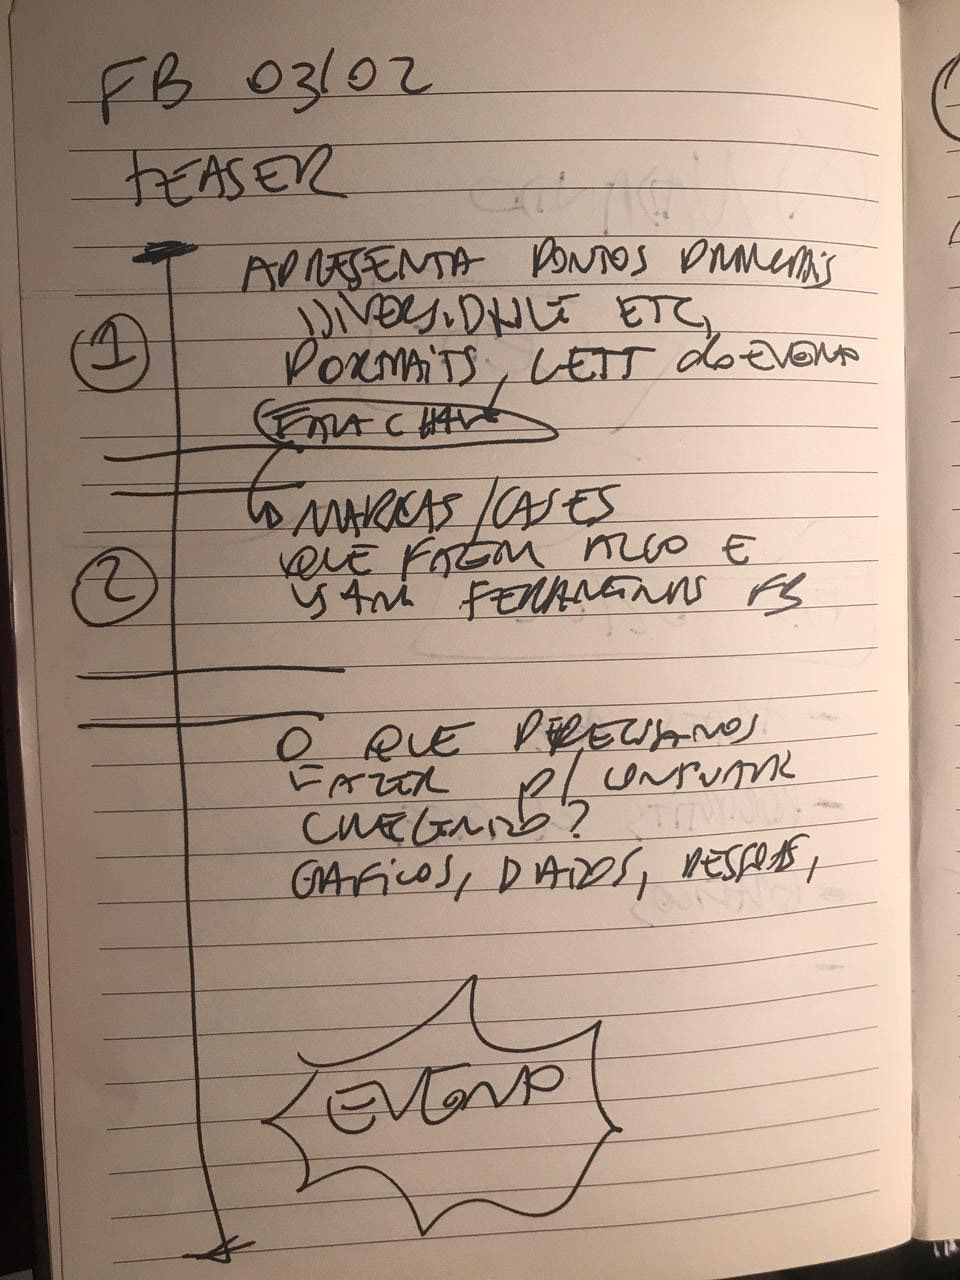 FB 03/02
TEASER
APRESENTA PONTOS PRINCIPAIS
DIVERSIDADE ETC,
PORTRAITS, LETT do EVENTO
①
FALA CHAVE
MARCAS/CASES
QUE FAZEM ALGO E
②
USAM FERRAMENTAS FB
O QUE PRECISAMOS
FAZER P/ CONTINUAR
CRESCENDO?
GRAFICOS, DADOS, PESSOAS,
EVENTO